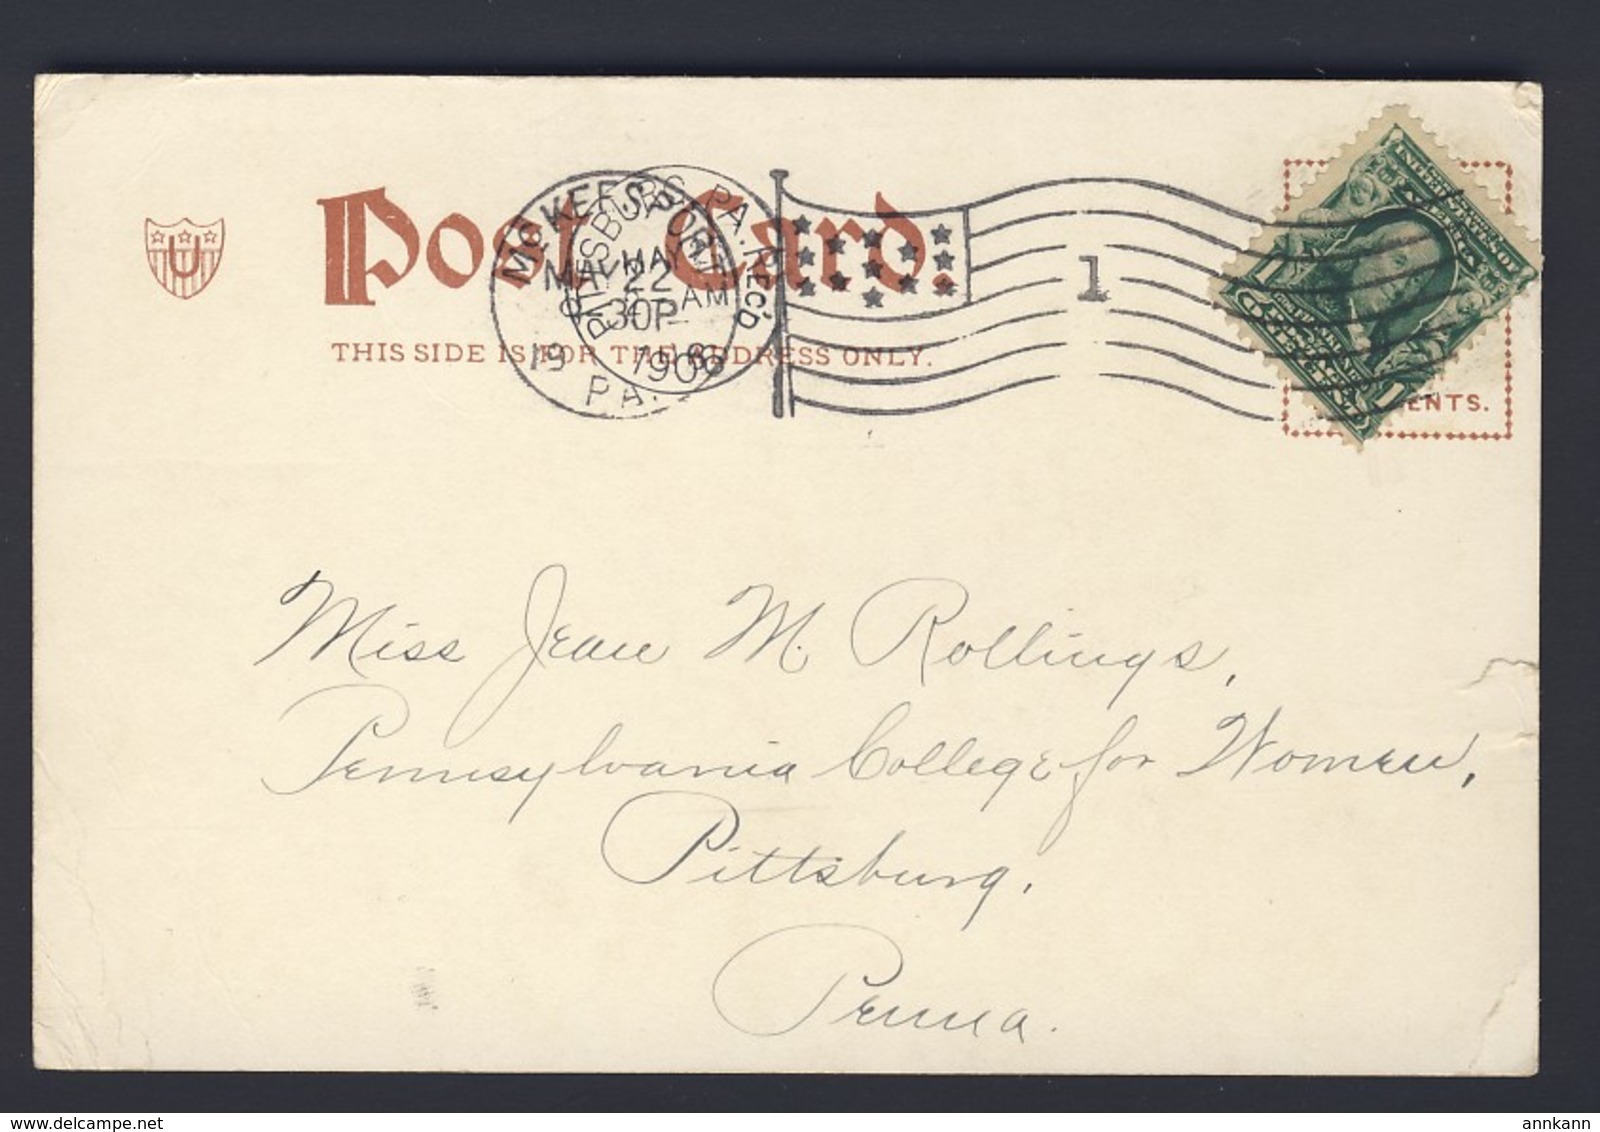 U
Post Card.
THIS SIDE IS FOR THE ADDRESS ONLY.
McKEESPORT
MAY 22
30P
19
PA.
PITTSBURG, PA. REC'D
MAY
AM
1906
1
ENTS.
Miss Jean M. Rollings,
Pennsylvania College for Women,
Pittsburg,
Penna.
www.delcampe.net
annkann